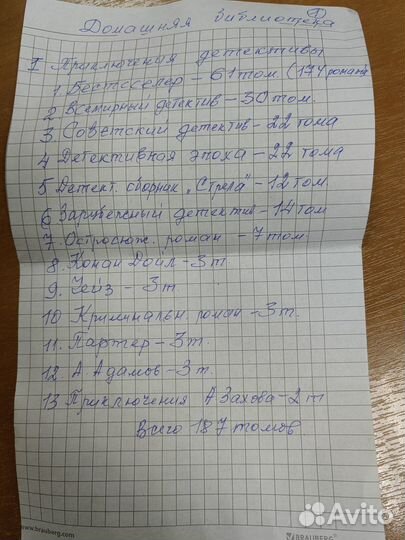 Домашняя библиотека ①
I Приключения детективы
1. Бестселлер - 61 том. (174 романа
2 Всемирный детектив - 30 том.
3. Советский детектив - 22 тома
4 Детективная эпоха - 22 тома
5 Детект. сборник „Стрела" - 12 том.
6 Зарубежный детектив - 14 том
7. Остросюж. роман - 7 том
8. Конан Дойл - 3 т.
9. Чейз - 3 т
10 Криминальн. роман - 3 т.
11. Картер - 3 т.
12. А. Адамов - 3 т.
13 Приключения А Захова - 2 т
Всего 187 томов.
www.brauberg.com
BRAUBERG
Avito